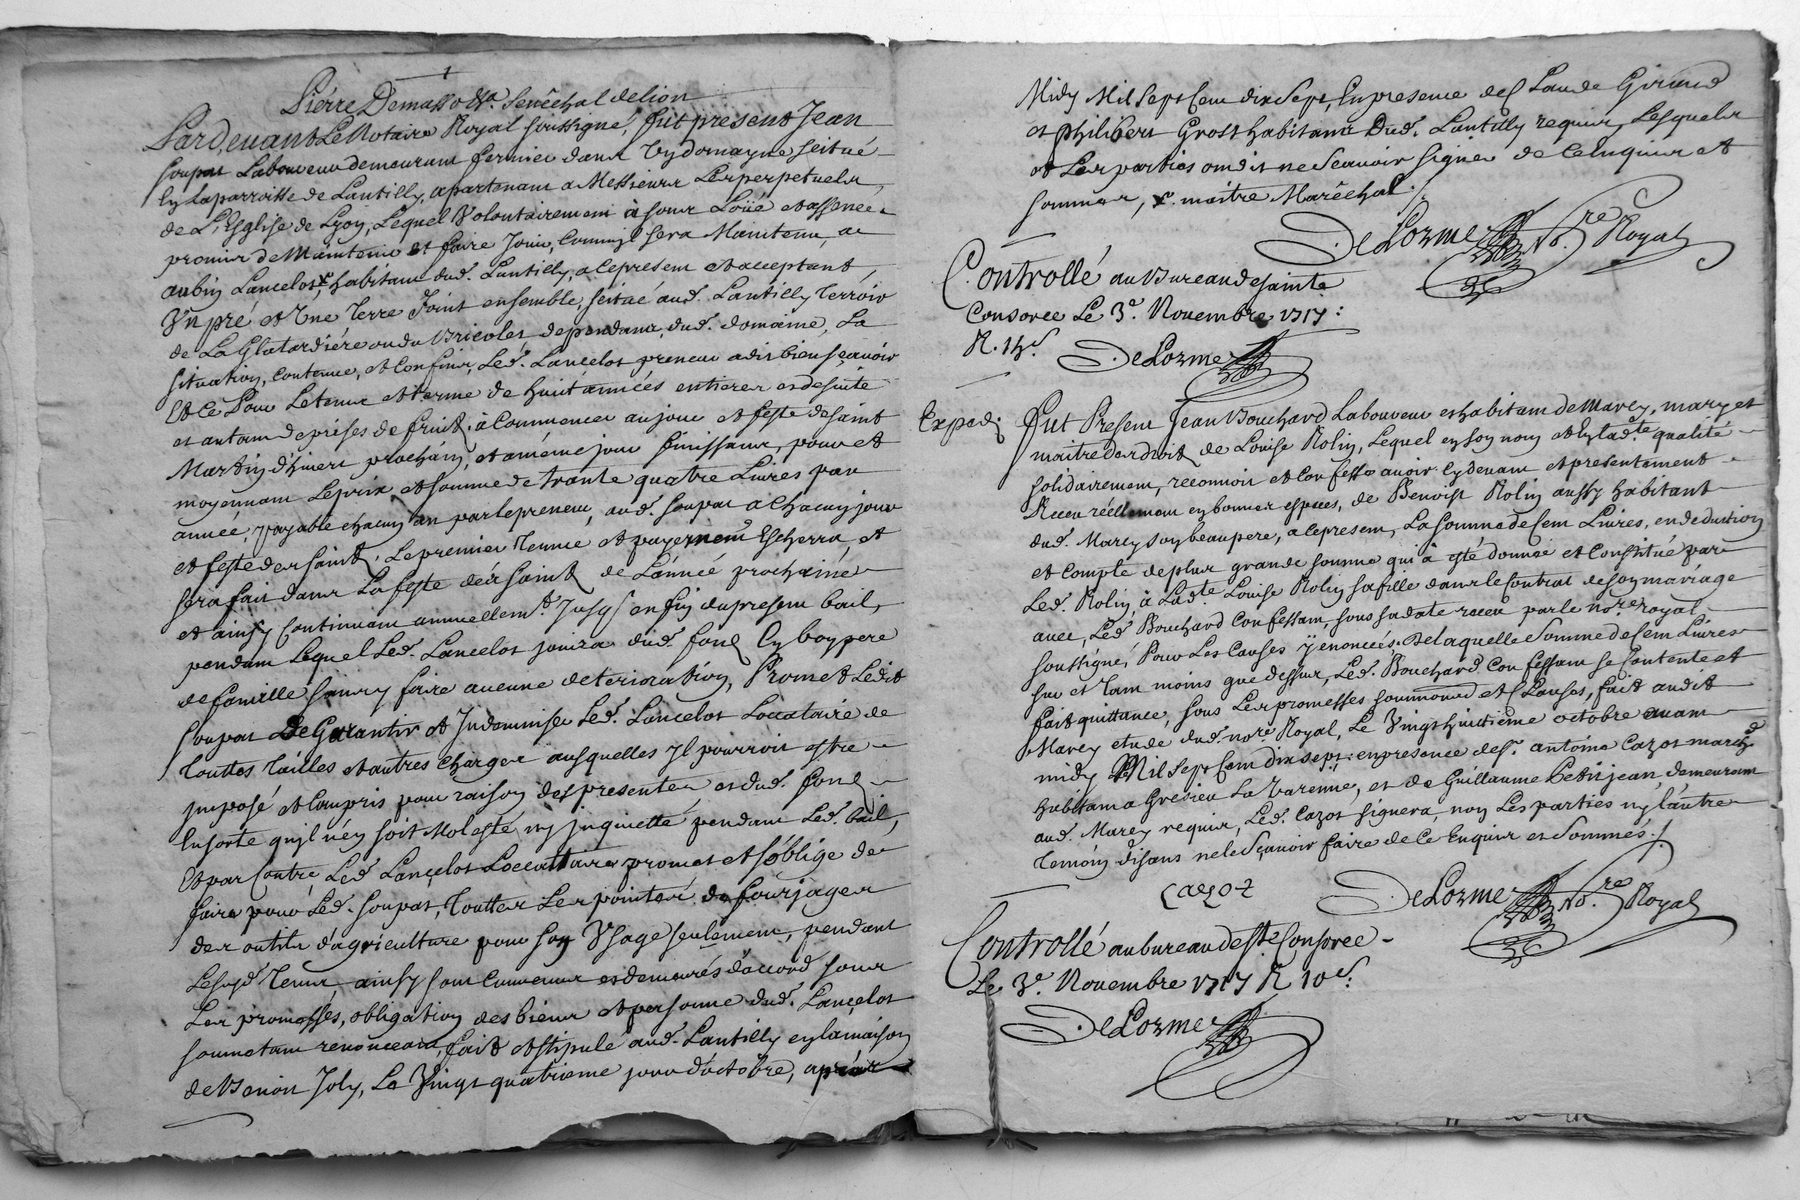 Pierre Demasso &a. Senêchal de lion
Pardevant Le Notaire Royal soussigné, fut present Jean
soupat Laboureur demeurant fermier dans Un domayne scitué
En la parroisse de Lantilly, apartenant a Messieurs Les perpetuels
de L'Esglise de Lyon, Lequel Volontairement à sous Loüé et assencé
promis de Maintenir et faire Jouir, Comme il sera Maintenu, a
aubin Lancelot x, habitant dud. Lantilly, a le present et acceptant,
Un pré et Une Terre Joint ensemble, scitué aud. Lantilly Terroir
de La Glatardiére ou du Bricolet dependant, dud. domaine, La
situation, Contenue, et Confins, Led. Lançelot preneur a dit bien sçavoir
Et Ce Pour Le temps et terme de huit années entieres et de suitte
et autant de prises de fruits, à Commencer au jour et feste de saint
Martin d'hiver prochain, et a même jour finissant, pour et
moyennant Le prix et somme de trante quatre Livres par
année, payable chacun an par le preneur, aud. soupat a chacun jour
et feste des saints, Le premier Terme et payement Escherra, et
sera fait dans La feste dés saints de L'année prochaine
et ainsy Continuant annuellemt. Jusqs. en fin du present bail,
pendant Lequel Led. Lancelot jouira dud. fond En bon pere
de famille sans y faire aucune deterioration, Promet Ledit
soupat de Garantir et Indemniser Led. Lancelot Loccataire de
touttes tailles et autres charges ausquelles Il pourroit estre
Imposé et Compris pour raison des presentes et dud. fond
En sorte qu'jl n'en soit Molesté, ny jnquietté pendant Led. bail,
Et par Contre Led. Lançelot Loccattaire promet et s'oblige de
faire pour Led. soupat, Touttes Les pointes de fourjages
des outils d'agriculture pour son Usage seulement, pendant
Lesusd. Temps ainsy sont Convenus et demeurés d'accord sous
Les promesses, obligation des biens et personne dud. Lançelot
soumetant renonceant, fait et stipulé aud. Lantilly en la maison
de Benoit Joly, Le Vingt quatriême jour d'octobre, aprés
Midy Mil sept Cent dix sept, En presence de Claude Giraud
et philibert Gross habitants Dud. Lantilly requis, Lesquels
et Les parties ont dit ne Scavoir signer de Ce Enquis et
sommés, x. maitre Maréchal ./.
DeLorme No.re Royal
Controllé au Bureau de sainte
Consorce Le 3e. Novembre 1717:
R. 1h s.
DeLorme
Exped.
Fut Present Jean Bouchard Laboureur et habitant de Marcy, mary et
maitre des droits de Louise Rolin, Lequel en son nom et En lad.te qualité
solidairement, reconnoit et Confesse avoir Cy devant et presentement
Receu réellement en bonnes especes, de Benoist Rolin aussy habitant
dud. Marcy son beaupere, a le present, La somme de Cent Livres, en deduction
et Compte de plus grande somme qui à esté donnée et Constitué par
Led. Rolin, à Lad.te Louise Rolin sa fille dans le Contrat de son mariage
avec, Led. Bouchard Confessant, sous sa date receu par le no.re royal
soussigné, Pour Les Causes y enoncées, De laquelle Somme de Cent Livres
sur et tant moins que dessus, Led. Bouchard Confessant se Contente et
fait quittance, sous Les promesses soumissions et Clauses, fait audit
Marcy etude dud. no.re Royal, Le Vingt huittiême octobre avant
midy Mil sept Cent dix sept, en presence de sr. antoine Cazot march.d
habitant a Grésieu La Varenne, et de Guillaume Petitjean, demeurant
aud. Marcy requis, Led. Cazot signera, non Les parties ny L'autre
Temoin disants ne le sçavoir faire de Ce Enquis et Sommés ./.
Cazot
DeLorme No.re Royal
Controllé au bureau de Ste Consorce
Le 3e. Novembre 1717 R 10 s.
DeLorme